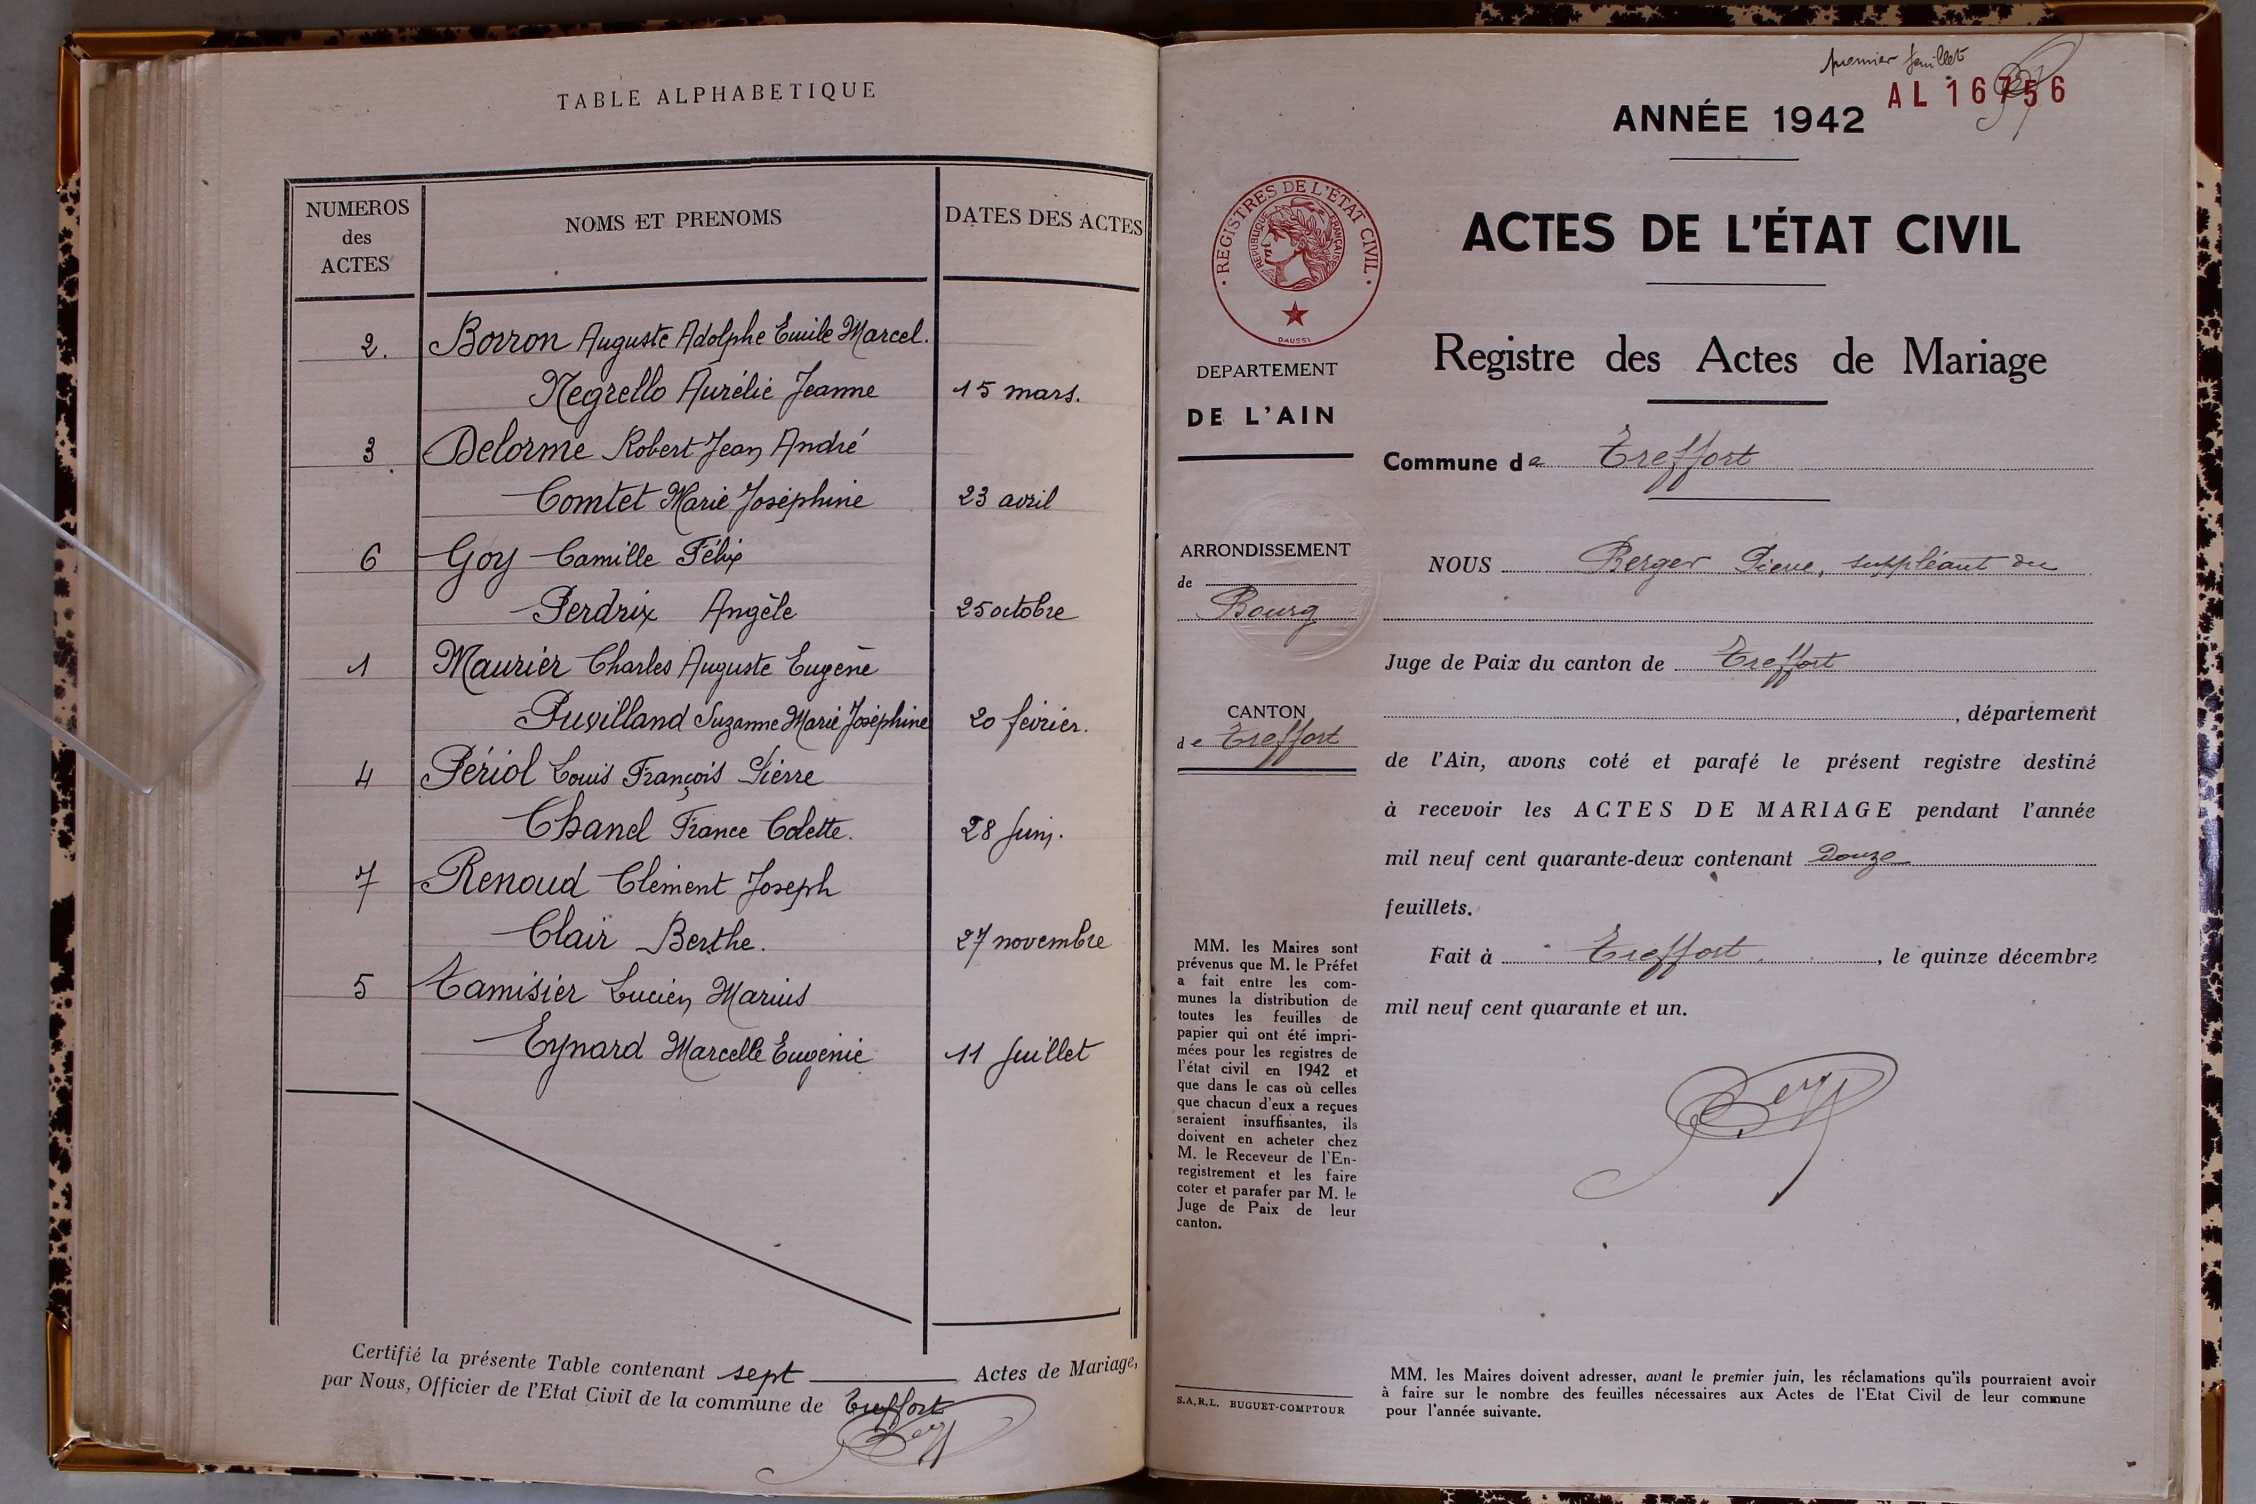 TABLE ALPHABETIQUE
NUMEROS
des
ACTES
NOMS ET PRENOMS
DATES DES ACTES
2. Borron Auguste Adolphe Emile Marcel.
Negrello Aurélie Jeanne 15 mars.
3 Delorme Robert Jean André
Comtet Marie Joséphine 23 avril
6 Goy Camille Félix
Perdrix Angèle 25 octobre
1 Maurier Charles Auguste Eugène
Puvilland Suzanne Marie Joséphine 20 février.
4 Périol Louis François Pierre
Chanel France Colette. 28 Juin.
7 Renoud Clément Joseph
Clair Berthe. 27 novembre
5 Tamisier Lucien Marius
Eynard Marcelle Eugénie 11 Juillet
Certifié la présente Table contenant sept Actes de Mariage,
par Nous, Officier de l'Etat Civil de la commune de Treffort
premier feuillet
AL 16756
ANNÉE 1942
ACTES DE L'ÉTAT CIVIL
Registre des Actes de Mariage
REGISTRES DE L'ÉTAT CIVIL
REPUBLIQUE FRANÇAISE
DAUSSI
DEPARTEMENT
DE L'AIN
ARRONDISSEMENT
de
Bourg
CANTON
de Treffort
MM. les Maires sont
prévenus que M. le Préfet
a fait entre les com-
munes la distribution de
toutes les feuilles de
papier qui ont été impri-
mées pour les registres de
l'état civil en 1942 et
que dans le cas où celles
que chacun d'eux a reçues
seraient insuffisantes, ils
doivent en acheter chez
M. le Receveur de l'En-
registrement et les faire
coter et parafer par M. le
Juge de Paix de leur
canton.
S.A.R.L. BUGUET-COMPTOUR
Commune de Treffort
NOUS Berger Pierre, suppléant du
Juge de Paix du canton de Treffort
, département
de l'Ain, avons coté et parafé le présent registre destiné
à recevoir les ACTES DE MARIAGE pendant l'année
mil neuf cent quarante-deux contenant Douze
feuillets.
Fait à Treffort , le quinze décembre
mil neuf cent quarante et un.
MM. les Maires doivent adresser, avant le premier juin, les réclamations qu'ils pourraient avoir
à faire sur le nombre des feuilles nécessaires aux Actes de l'Etat Civil de leur commune
pour l'année suivante.